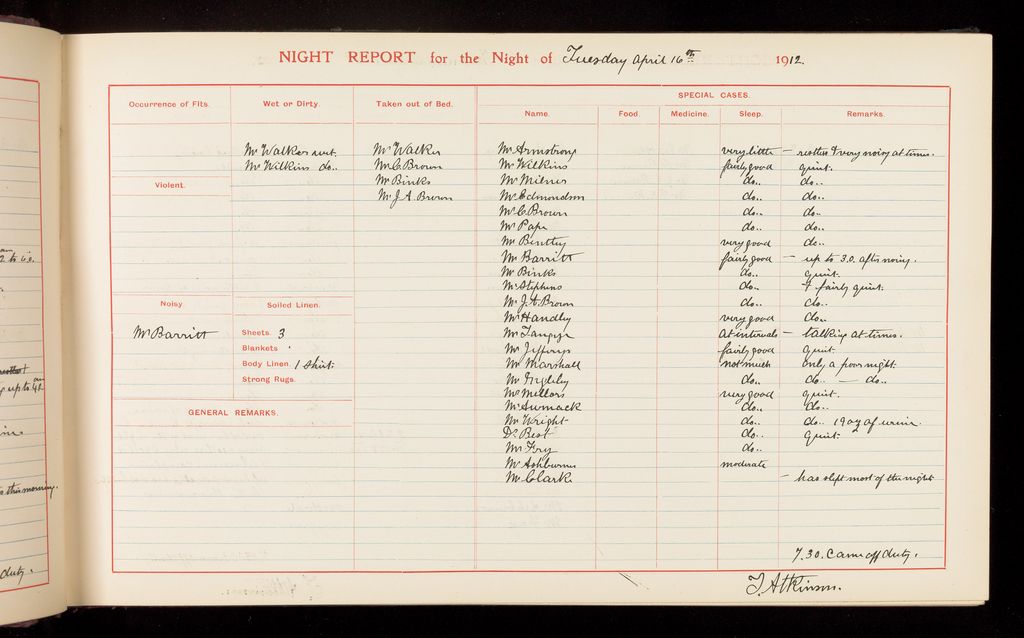 NIGHT REPORT for the Night of Tuesday April 16th 1912.
SPECIAL CASES.
Occurrence of Fits. Wet or Dirty. Taken out of Bed. Name. Food. Medicine. Sleep. Remarks.
Mr Walker wet. Mr Walker Mr Armstrong very little — restless & very noisy at times.
Mr Wilkins do.. Mr C. Brown Mr Wilkins fairly good quiet.
Violent. Mr Binks Mr Milnes do.. do..
Mr J. A. Brown Mr Edmondson do.. do..
Mr C. Brown do.. do..
Mr Pape do.. do..
Mr Bentley very good do..
Mr Barritt fairly good — up to 3.0. after noisy.
Mr Binks do.. quiet.
Mr Stephens do.. fairly quiet.
Noisy Soiled Linen. Mr J. A. Brown do.. do..
Mr Handley very good do..
Mr Barritt Sheets. 3 Mr Tangye at intervals — talking at times.
Blankets Mr Jefferys fairly good quiet.
Body Linen. 1 Shirt. Mr Marshall not much only a poor night.
Strong Rugs. Mr do.. do.. — do..
Mr Mellors very good quiet.
GENERAL REMARKS. Mr do.. do..
Mr Wright do.. do.. 19 oz of urine.
Dr Best do.. quiet.
Mr Fry do..
Mr Ashburner moderate
Mr Clark — has slept most of the night.
7.30. Came off duty.
T. Atkinson.
2 to 6.0.
up to 4
this morning.
duty.